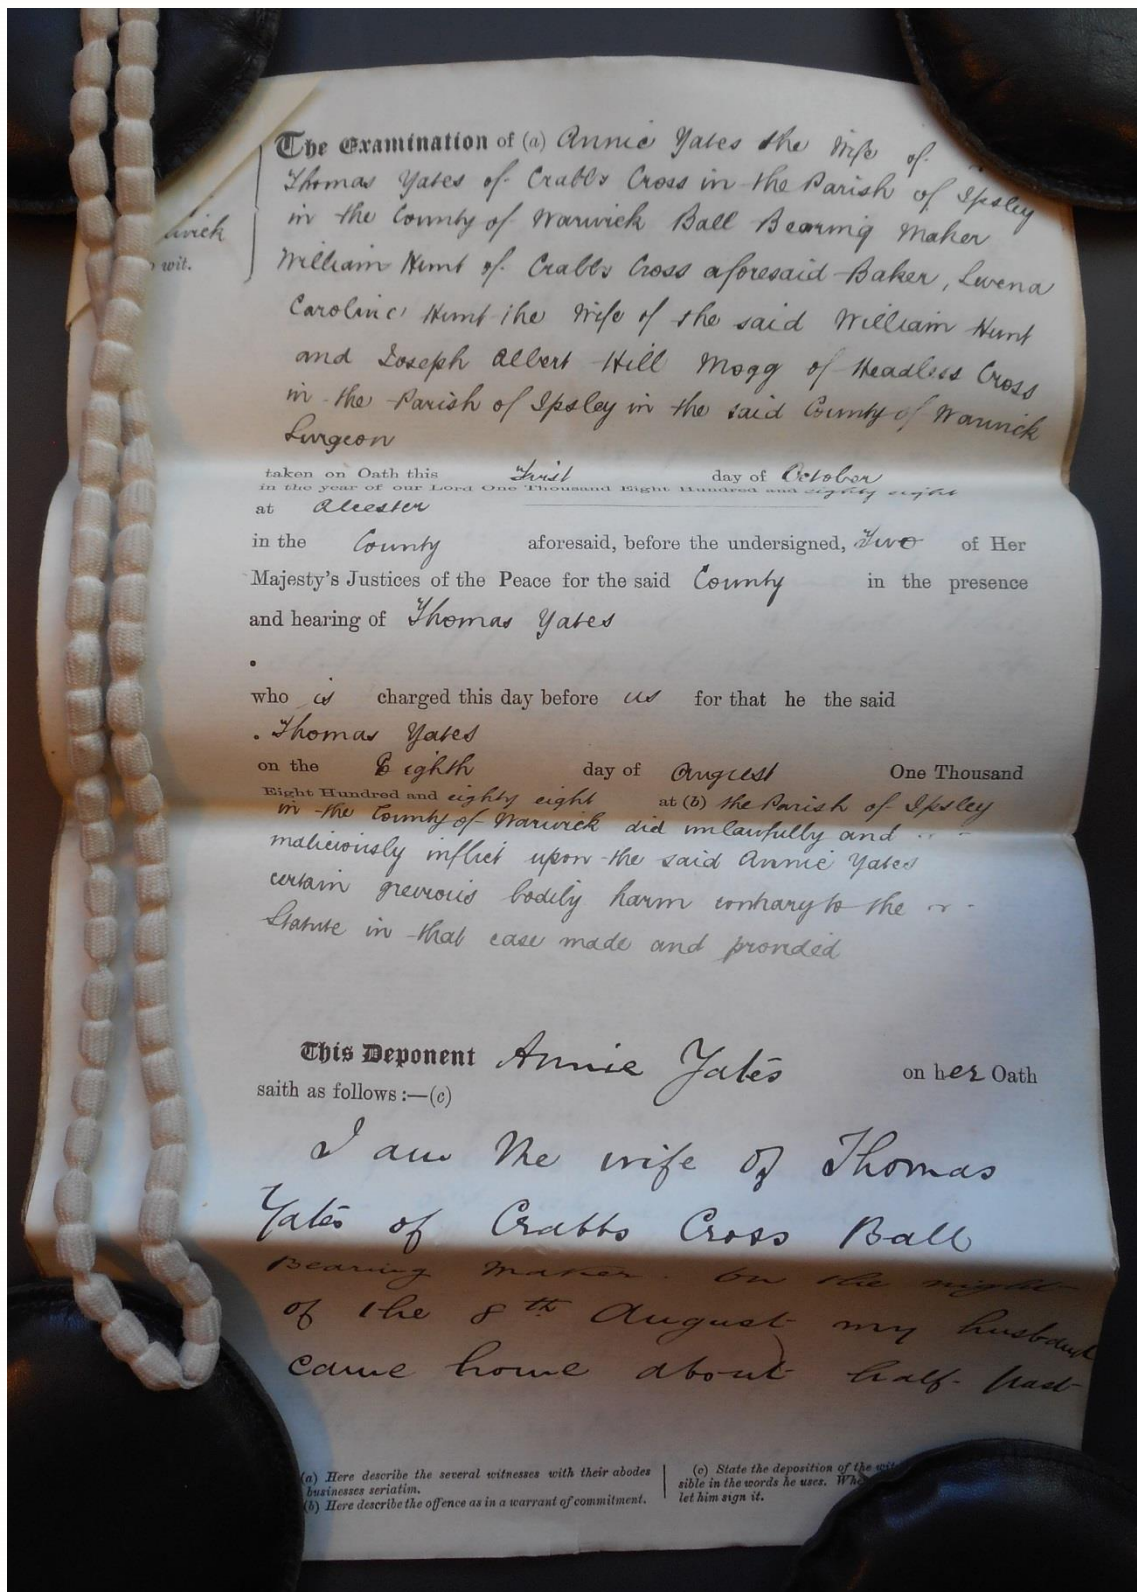 The Examination of (a) Annie Yates the Wife of
Thomas Yates of Crabbs Cross in the Parish of Ipsley
in the County of Warwick Ball Bearing Maker
wick
wit.
William Hunt of Crabbs Cross aforesaid Baker, Lurena
Caroline Hunt the Wife of the said William Hunt
and Joseph Albert Hill Mogg of Headless Cross
in the Parish of Ipsley in the said County of Warwick
Surgeon
taken on Oath this First day of October
in the year of our Lord One Thousand Eight Hundred and eighty eight
at Alcester
in the County aforesaid, before the undersigned, Two of Her
Majesty's Justices of the Peace for the said County in the presence
and hearing of Thomas Yates
who is charged this day before us for that he the said
Thomas Yates
on the Eighth day of August One Thousand
Eight Hundred and eighty eight at (b) the Parish of Ipsley
in the County of Warwick did unlawfully and
maliciously inflict upon the said Annie Yates
certain grevious bodily harm contrary to the
Statute in that case made and provided
This Deponent Annie Yates on her Oath
saith as follows:—(c)
I am the wife of Thomas
Yates of Crabbs Cross Ball
Bearing Maker. On the night
of the 8th August my husband
came home about half past
(a) Here describe the several witnesses with their abodes
businesses seriatim.
(b) Here describe the offence as in a warrant of commitment.
(c) State the deposition of the
sible in the words he uses.
let him sign it.